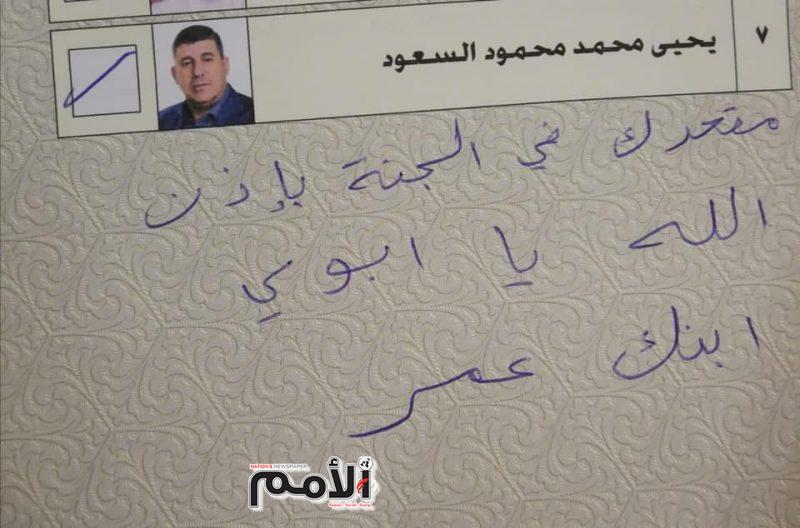 ٧ يحيى محمد محمود السعود
مقعدك في الجنة بإذن
الله يا ابوي
ابنك عمر
NATION'S NEWSPAPER
الأمم